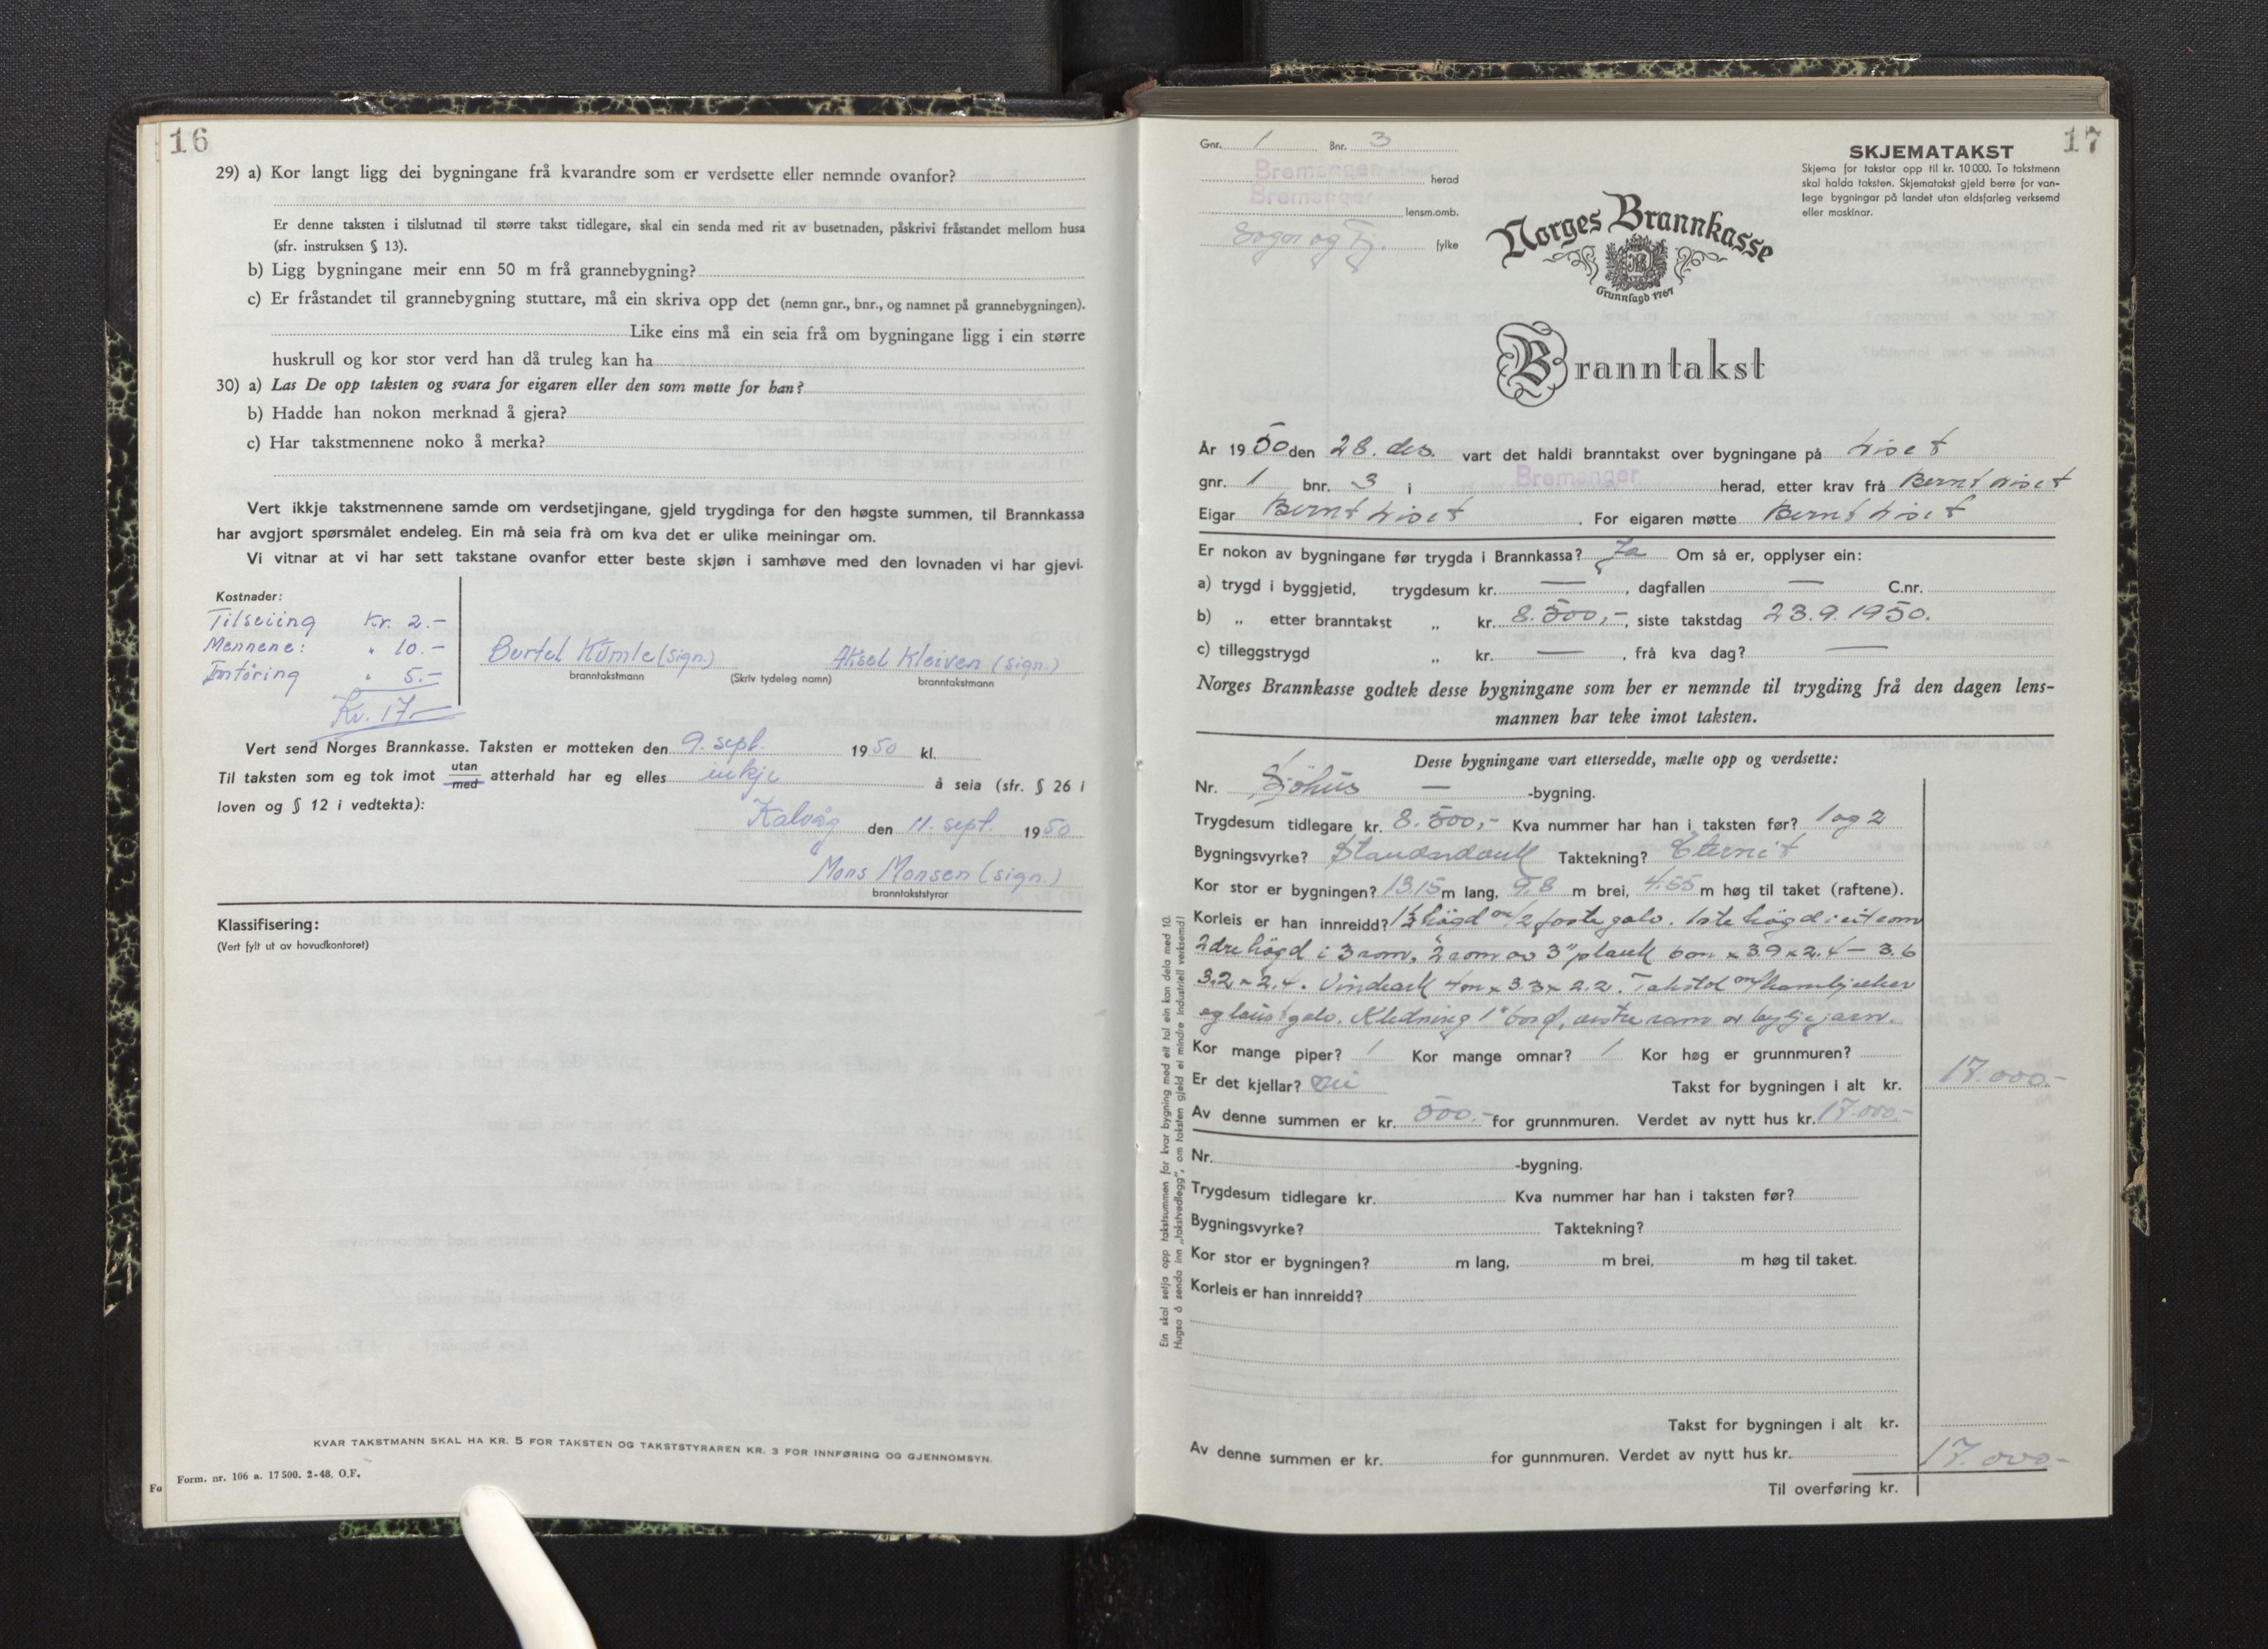 16
29) a) Kor langt ligg dei bygningane frå kvarandre som er verdsette eller nemnde ovanfor?
Er denne taksten i tilslutnad til større takst tidlegare, skal ein senda med rit av busetnaden, påskrivi fråstandet mellom husa
(sfr. instruksen § 13).
b) Ligg bygningane meir enn 50 m frå grannebygning?
c) Er fråstandet til grannebygning stuttare, må ein skriva opp det (nemn gnr., bnr., og namnet på grannebygningen).
Like eins må ein seia frå om bygningane ligg i ein større
huskrull og kor stor verd han då truleg kan ha
30) a) Las De opp taksten og svara for eigaren eller den som møtte for han?
b) Hadde han nokon merknad å gjera?
c) Har takstmennene noko å merka?
Vert ikkje takstmennene samde om verdsetjingane, gjeld trygdinga for den høgste summen, til Brannkassa
har avgjort spørsmålet endeleg. Ein må seia frå om kva det er ulike meiningar om.
Vi vitnar at vi har sett takstane ovanfor etter beste skjøn i samhøve med den lovnaden vi har gjevi.
Kostnader:
Tilseiing Kr. 2.-
Mennene: " 10.-
Innføring " 5.-
Kr. 17.-
Bertel Kumle (sign.) Aksel Kleiven (sign.)
branntakstmann (Skriv tydeleg namn) branntakstmann
Vert send Norges Brannkasse. Taksten er motteken den 9. sept. 1950 kl.
Til taksten som eg tok imot utan/med atterhald har eg elles inkje å seia (sfr. § 26 i
loven og § 12 i vedtekta):
Kalvåg den 11. sept. 1950
Mons Monsen (sign.)
branntakststyrar
Klassifisering:
(Vert fylt ut av hovudkontoret)
KVAR TAKSTMANN SKAL HA KR. 5 FOR TAKSTEN OG TAKSTSTYRAREN KR. 3 FOR INNFØRING OG GJENNOMSYN.
Form. nr. 106 a. 17500. 2-48. O.F.
Fo
17
Gnr. 1 Bnr. 3
Bremanger herad
Bremanger lensm.omb.
Sogn og Fj. fylke
SKJEMATAKST
Skjema for takstar opp til kr. 10000. To takstmenn
skal halda taksten. Skjematakst gjeld berre for van-
lege bygningar på landet utan eldsfarleg verksemd
eller maskinar.
Norges Brannkasse
Grunnlagd 1767
Branntakst
År 1950 den 28. des. vart det haldi branntakst over bygningane på Liset
gnr. 1 bnr. 3 i Bremanger herad, etter krav frå Bernt Liset
Eigar Bernt Liset. For eigaren møtte Bernt Liset
Er nokon av bygningane før trygda i Brannkassa? Ja Om så er, opplyser ein:
a) trygd i byggjetid, trygdesum kr. —, dagfallen — C.nr.
b) „ etter branntakst „ kr. 8.500,-, siste takstdag 23.9.1950.
c) tilleggstrygd „ kr. —, frå kva dag? —
Norges Brannkasse godtek desse bygningane som her er nemnde til trygding frå den dagen lens-
mannen har teke imot taksten.
Desse bygningane vart ettersedde, mælte opp og verdsette:
Nr. 1 Sjöhus — -bygning.
Trygdesum tidlegare kr. 8.500,- Kva nummer har han i taksten før? 1 og 2
Bygningsvyrke? Taktekning? Eternit
Kor stor er bygningen? 13.15 m lang, 9.8 m brei, 4.55 m høg til taket (raftene).
Korleis er han innreidd? högd m/2 faste golv. 1ste högd i eit rom
2dre högd i 3 rom, 2 rom av 3" plank 6 m x 3.9 x 2.4 — 3.6
3.2 x 2.4. Vindark 4 m x 3.3 x 2.2. Takstol m/hanebjelker
og laust golv. Kledning 1" bord, av bylgjejarn.
Kor mange piper? 1 Kor mange omnar? 1 Kor høg er grunnmuren?
Er det kjellar? Takst for bygningen i alt kr. 17.000.-
Av denne summen er kr. 500.- for grunnmuren. Verdet av nytt hus kr. 17.000.-
Nr. -bygning.
Trygdesum tidlegare kr. Kva nummer har han i taksten før?
Bygningsvyrke? Taktekning?
Kor stor er bygningen? m lang, m brei, m høg til taket.
Korleis er han innreidd?
Takst for bygningen i alt kr.
Av denne summen er kr. for gunnmuren. Verdet av nytt hus kr.
17.000-
Til overføring kr.
Ein skal setja opp takstsummen for kvar bygning med eit tal ein kan dela med 10.
Hugsa å senda inn „takstvedlegg", om taksten gjeld ei mindre industriell verksemd!